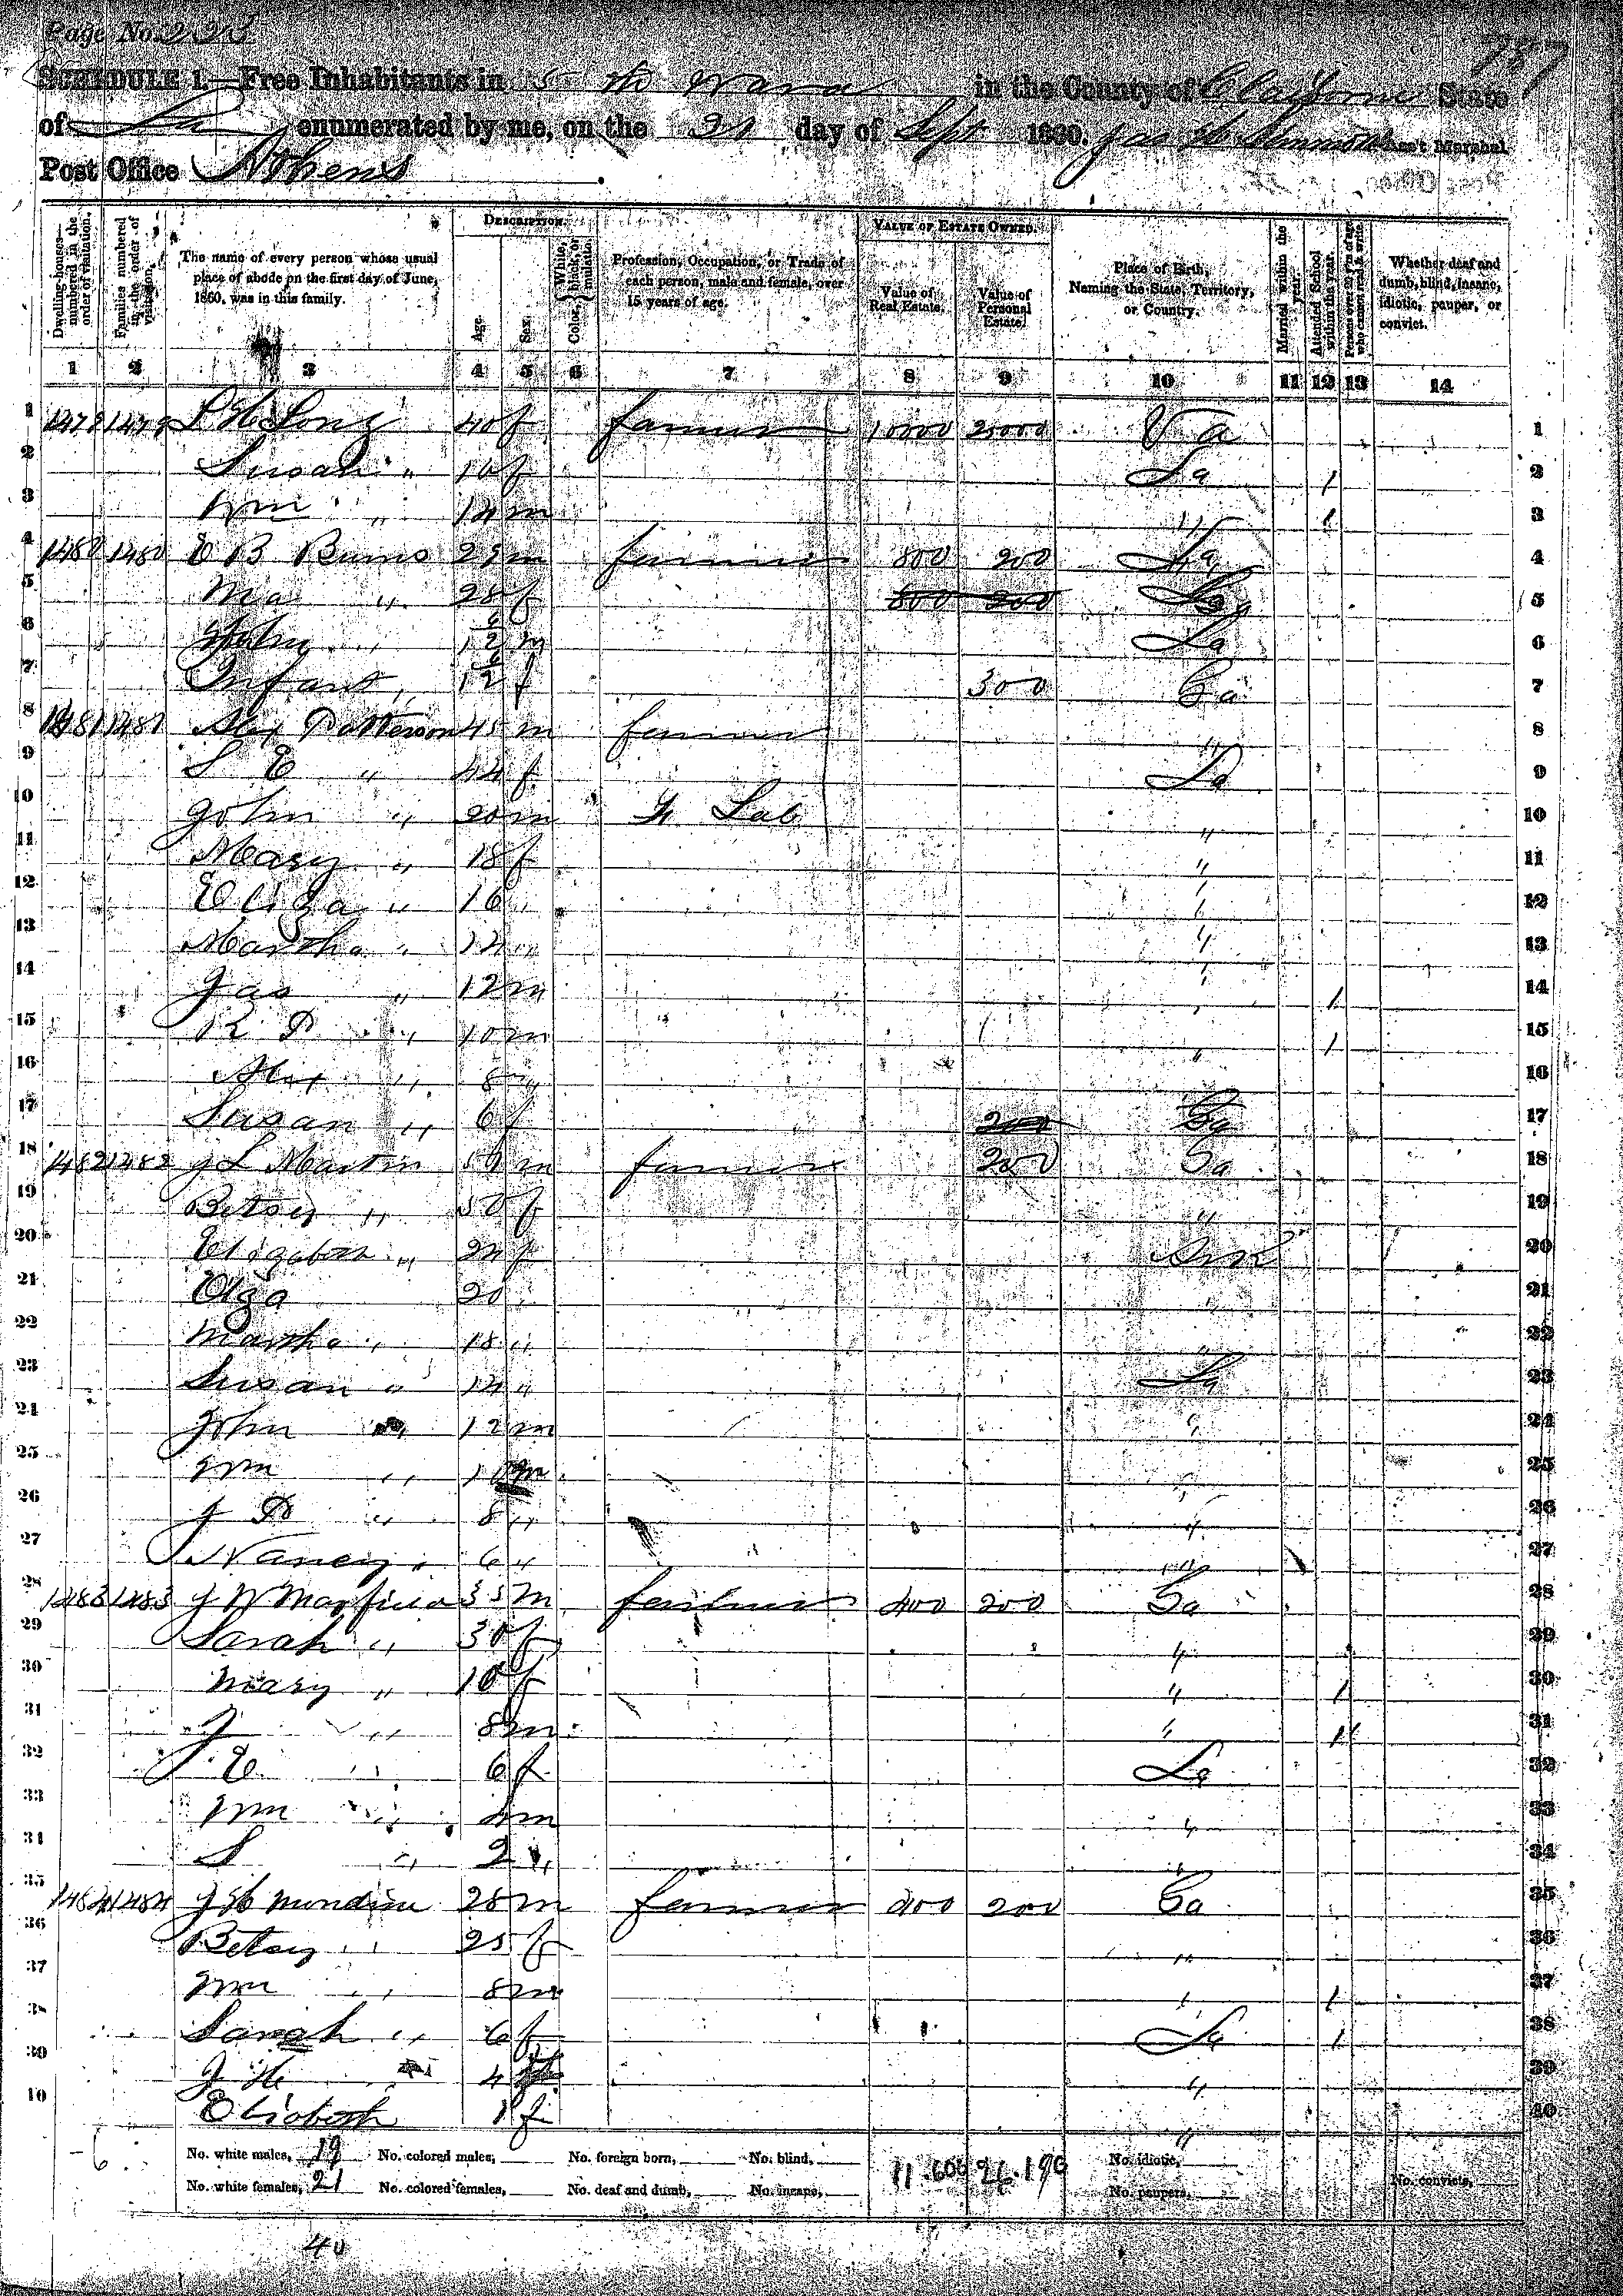 Page No. 223
787
SCHEDULE 1.—Free Inhabitants in 5 th Ward in the County of Claiborne State
of La enumerated by me, on the 21 day of Sept 1860. Jas Ass't Marshal.
Post Office Athens
Dwelling-houses—numbered in the order of visitation.
Families numbered in the order of visitation.
The name of every person whose usual place of abode on the first day of June, 1860, was in this family.
DESCRIPTION.
Age.
Sex.
Color, White, black, or mulatto.
Profession, Occupation, or Trade of each person, male and female, over 15 years of age.
VALUE OF ESTATE OWNED.
Value of Real Estate.
Value of Personal Estate.
Place of Birth, Naming the State, Territory, or Country.
Married within the year.
Attended School within the year.
Persons over 20 y'rs of age who cannot read & write.
Whether deaf and dumb, blind, insane, idiotic, pauper, or convict.
1 2 3 4 5 6 7 8 9 10 11 12 13 14
1 1479 1479 Long 40 f farmer 10000 25000 Va 1
2 Susan " 10 f La 1 2
3 Wm " 14 m " 1 3
4 1480 1480 E B Burns 25 m farmer 800 200 La 4
5 Ma " 28 f 800 200 5
6 John " m La 6
7 Infant " f 300 Ga 7
8 1481 1481 Alex Patterson 45 m farmer " 8
9 S E " 44 f La 9
10 John " 20 m Lab " 10
11 Mary " 18 f " 11
12 Eliza " 16 " " 12
13 Martha " 14 " " 13
14 Jas " 12 m " 1 14
15 R P " 10 m " 1 15
16 Alex " 8 " 16
17 Susan " 6 f 200 Ga 17
18 1482 1482 J L Martin m farmer 200 Ga 18
19 Betsy " 50 f " 19
20 Elizabeth " 24 f Ark 20
21 20 " " 21
22 Martha " 18 " " 22
23 Susan " 14 " La 23
24 John " 12 m " 24
25 Wm " 10 m " 25
26 J " 8 " " 26
27 Nancy " 6 " " 27
28 1483 1483 J W 35 m farmer 400 200 Ga 28
29 Sarah " 30 f " 29
30 Mary " 10 f " 1 30
31 J " 8 m " 1 31
32 E " 6 f La 32
33 Wm " 4 m " 33
34 S " 2 " " 34
35 1484 1484 28 m farmer 400 200 Ga 35
36 Betsy " 25 f " 36
37 Wm " 8 m " 1 37
38 Sarah " 6 f La 1 38
39 J H " 4 " 39
40 f " 40
No. white males, 19 No. colored males, No. foreign born, No. blind, 11.600 26.190 No. idiotic,
No. white females, 21 No. colored females, No. deaf and dumb, No. insane, No. paupers, No. convicts,
40